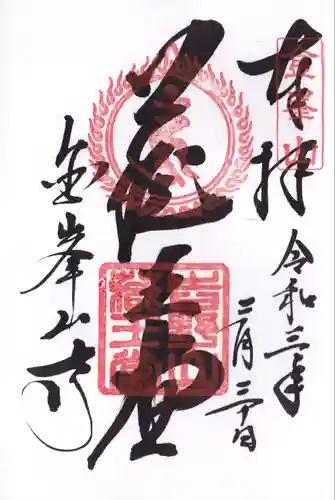 奉拝
金峯山
令和三年
三月三十日
蔵王堂
吉野山
蔵王堂
金峯山寺